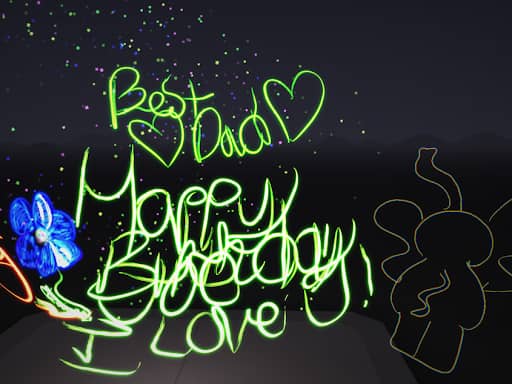 Best
Dad
Happy
Birthday!
I Love